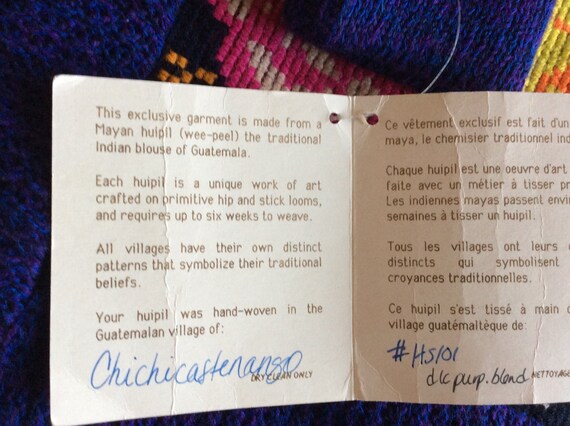 This exclusive garment is made from a
Mayan huipil (wee-peel) the traditional
Indian blouse of Guatemala.
Each huipil is a unique work of art
crafted on primitive hip and stick looms,
and requires up to six weeks to weave.
All villages have their own distinct
patterns that symbolize their traditional
beliefs.
Your huipil was hand-woven in the
Guatemalan village of:
Chichicastenango
DRY CLEAN ONLY
Ce vêtement exclusif est fait d'un
maya, le chemisier traditionnel ind
Chaque huipil est une oeuvre d'art
faite avec un métier à tisser pr
Les indiennes mayas passent envir
semaines à tisser un huipil.
Tous les villages ont leurs
distincts qui symbolisent
croyances traditionnelles.
Ce huipil s'est tissé à main d
village guatémaltèque de:
#HS101
dk purp. blend
NETTOYAGE